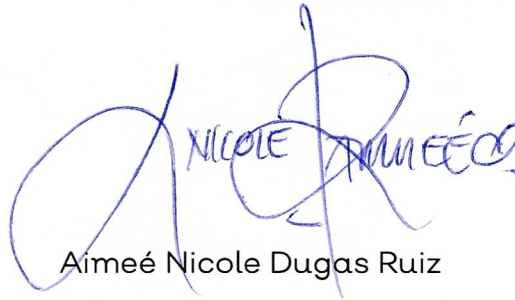 NICOLE
Aimeé Nicole Dugas Ruiz